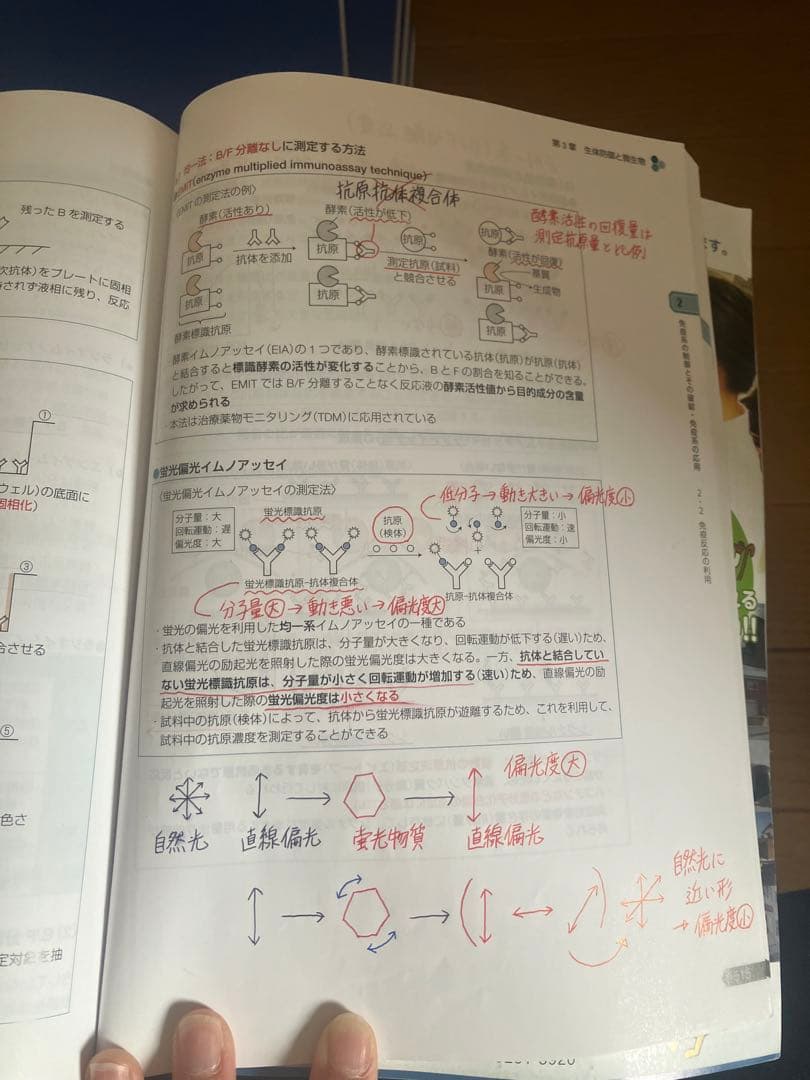 第3章 生体防御と微生物
均一法：B/F分離なしに測定する方法
EMIT(enzyme multiplied immunoassay technique)
〈EMITの測定法の例〉
抗原抗体複合体
酵素(活性あり)
酵素(活性が低下)
酵素活性の回復量は
測定抗原量と比例
抗原
抗体を添加
抗原
抗原
測定抗原(試料)
と競合させる
抗原
酵素(活性が回復)
基質
抗原
生成物
抗原
抗原
抗原
酵素標識抗原
酵素イムノアッセイ(EIA)の1つであり、酵素標識されている抗体(抗原)が抗原(抗体)
と結合すると標識酵素の活性が変化することから、BとFの割合を知ることができる。
したがって、EMITではB/F分離することなく反応液の酵素活性値から目的成分の含量
が求められる
・本法は治療薬物モニタリング(TDM)に応用されている
●蛍光偏光イムノアッセイ
〈蛍光偏光イムノアッセイの測定法〉
低分子→動き大きい→偏光度小
分子量：大
回転運動：遅
偏光度：大
蛍光標識抗原
抗原
(検体)
分子量：小
回転運動：速
偏光度：小
+
蛍光標識抗原-抗体複合体
抗原-抗体複合体
分子量大→動き悪い→偏光度大
・蛍光の偏光を利用した均一系イムノアッセイの一種である
・抗体と結合した蛍光標識抗原は、分子量が大きくなり、回転運動が低下する(遅い)ため、
直線偏光の励起光を照射した際の蛍光偏光度は大きくなる。一方、抗体と結合してい
ない蛍光標識抗原は、分子量が小さく回転運動が増加する(速い)ため、直線偏光の励
起光を照射した際の蛍光偏光度は小さくなる
・試料中の抗原(検体)によって、抗体から蛍光標識抗原が遊離するため、これを利用して、
試料中の抗原濃度を測定することができる
偏光度大
自然光
直線偏光
蛍光物質
直線偏光
自然光に
近い形
→偏光度小
2
免疫系の制御とその破綻・免疫系の応用
2・2 免疫反応の利用
515
残ったBを測定する
次抗体)をプレートに固相
されず液相に残り、反応
①
ウェル)の底面に
固相化)
③
合させる
⑤
色さ
定対象を抽
ます。
る
!!